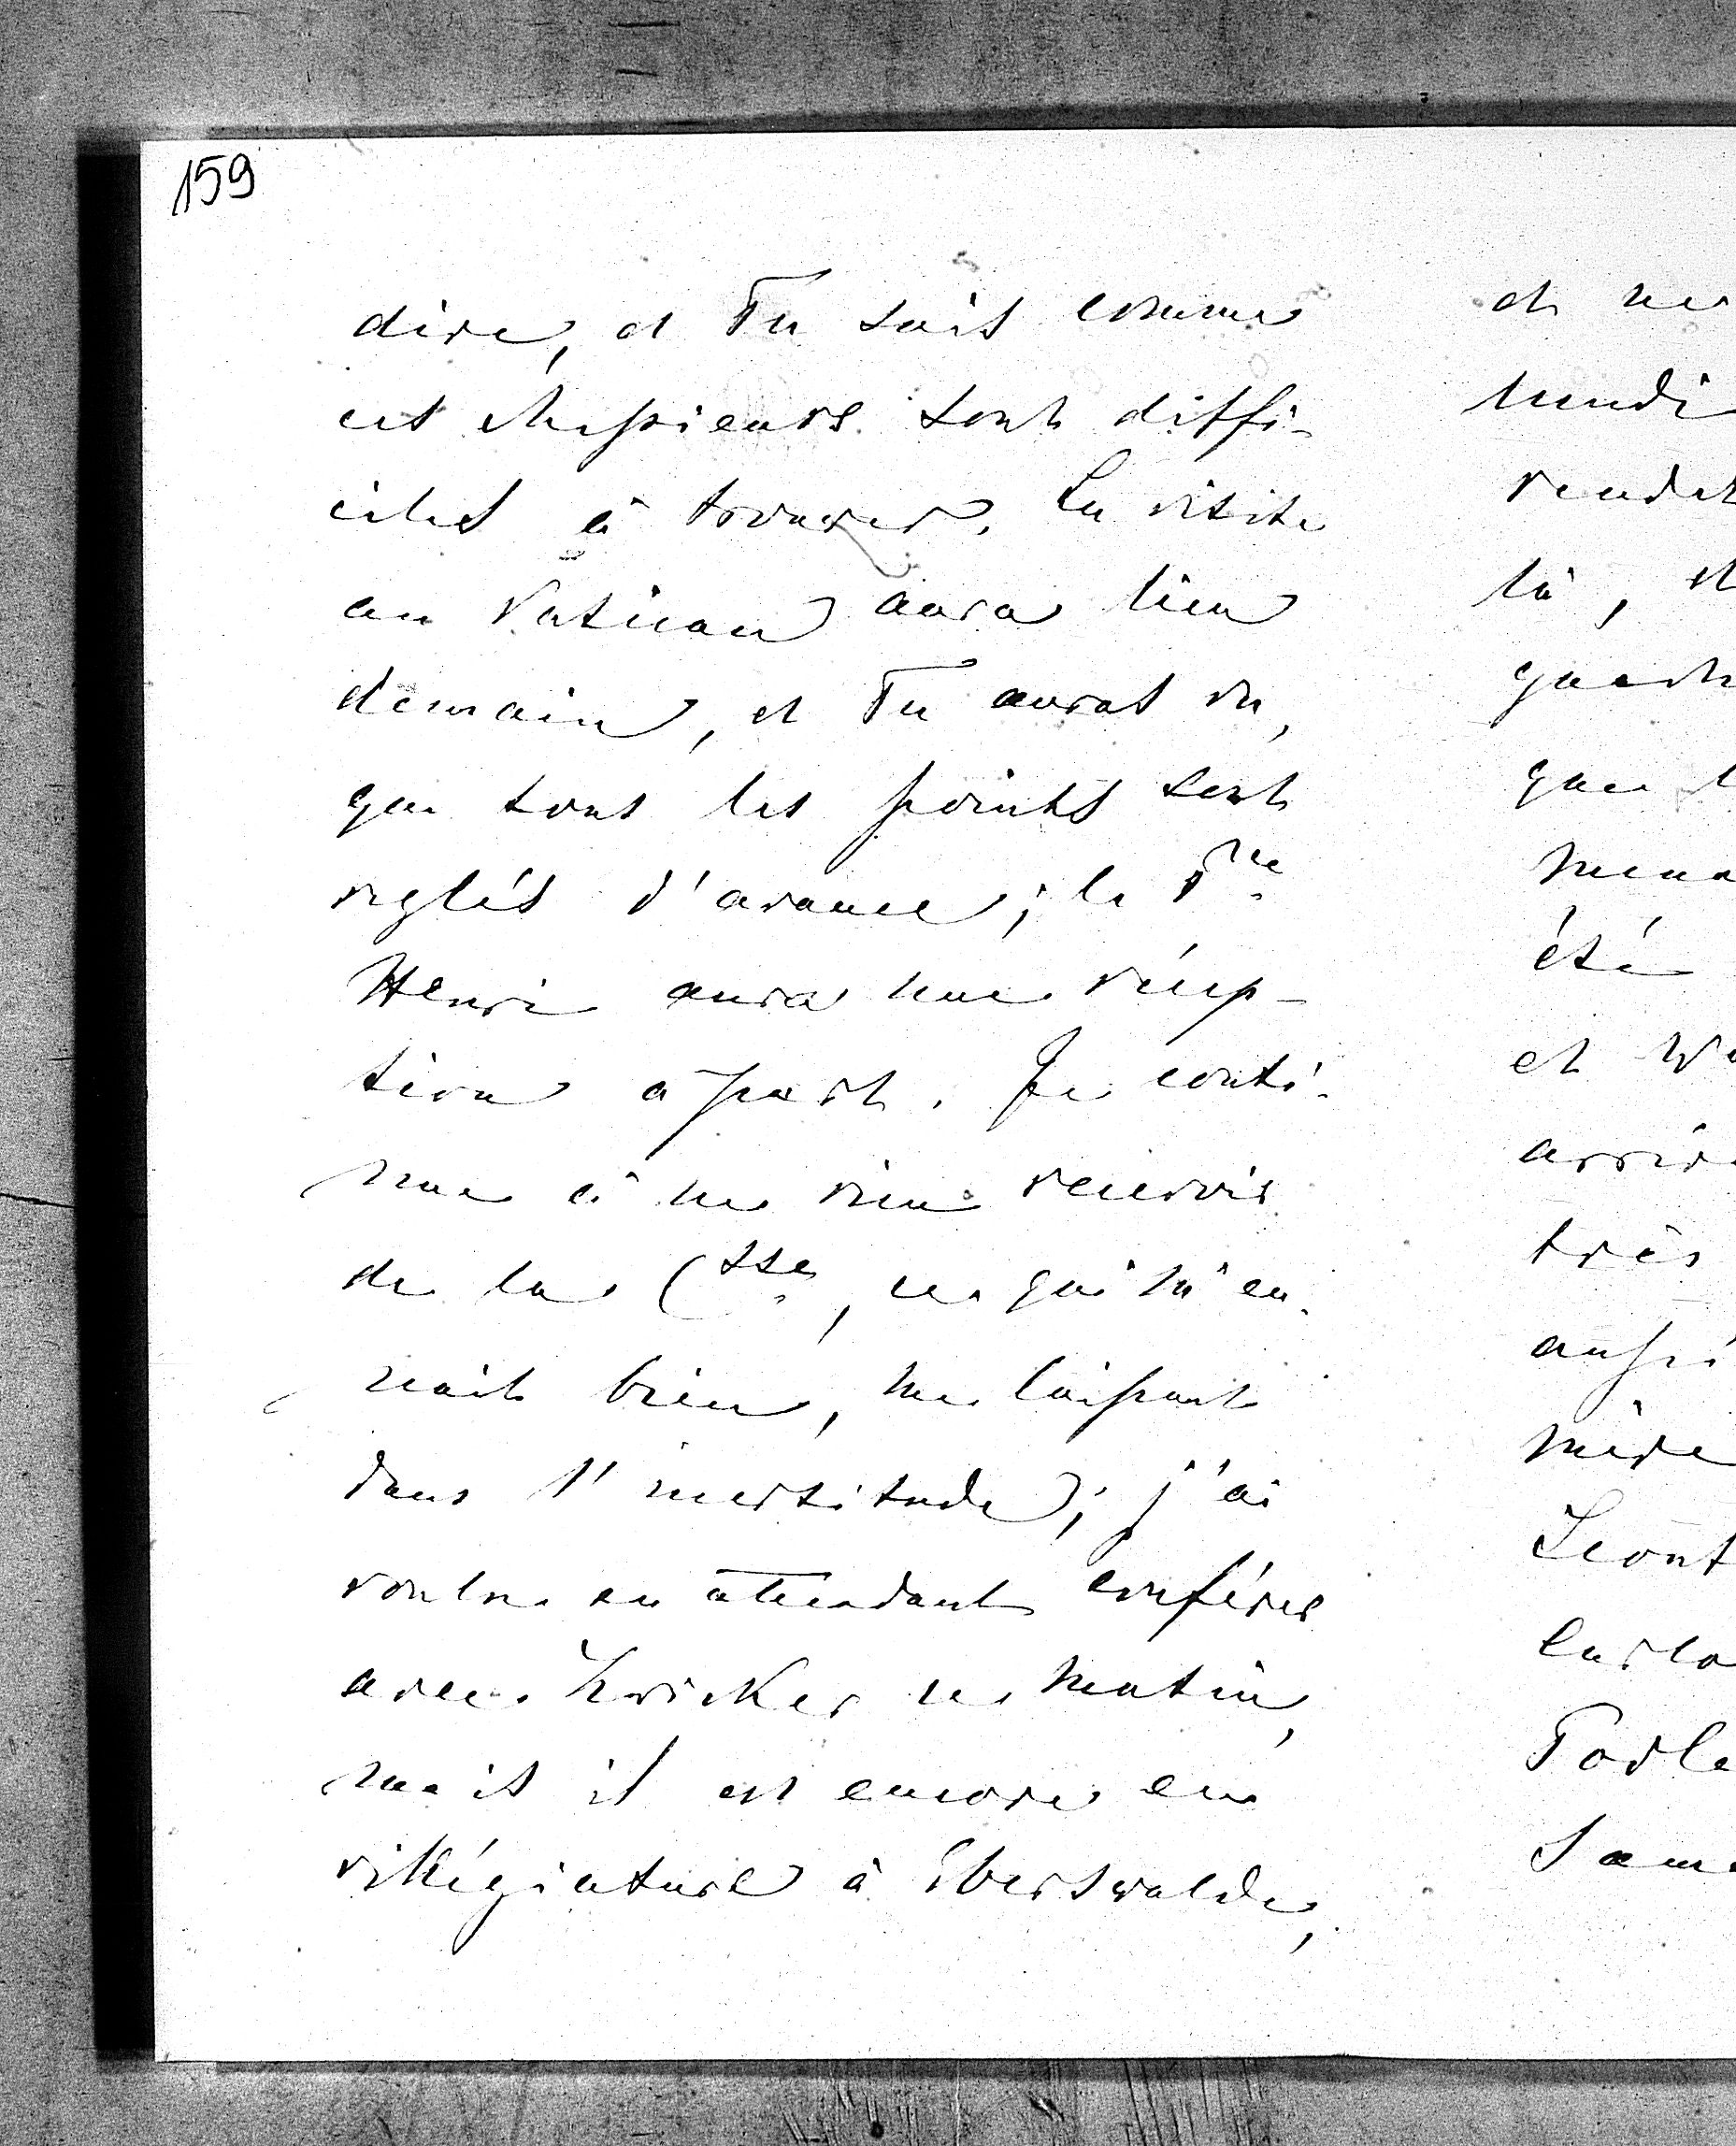 159
dire, et Tu sais comme
ces Messieurs sont diffi-
ciles à trouver. La visite
au Vatican aura lieu
demain, et Tu auras vu,
que tous les points sont
reglés d'avance; le Pce
Henri aura une récep-
tion à part. Je conti-
nue à ne rien recevoir
de la Csse, ce qui m'en-
nuit bien, me laissant
dans l'incertitude; j'ai
voulu en attendant conférer
avec Kricker ce matin,
mais il est encore en
villégiature à Eberswalde,
et ne
lundi
là, et
que l
été
et
très
aussi
mère